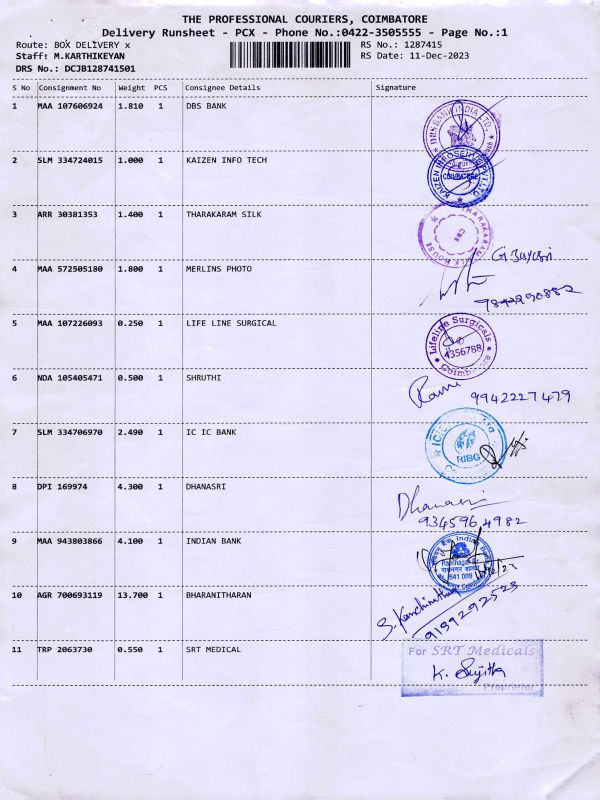 THE PROFESSIONAL COURIERS, COIMBATORE
Delivery Runsheet - PCX - Phone No.:0422-3505555 - Page No.:1
Route: BOX DELIVERY x
RS No.: 1287415
Staff: M.KARTHIKEYAN
RS Date: 11-Dec-2023
DRS No.: DCJB128741501
S No Consignment No Weight PCS Consignee Details Signature
1 MAA 107606924 1.810 1 DBS BANK
DBS BANK INDIA LTD.
2 SLM 334724015 1.000 1 KAIZEN INFO TECH
COIMBATORE
3 ARR 30381353 1.400 1 THARAKARAM SILK
THARAKARAM SILK HOUSE
CBE
4 MAA 572505180 1.800 1 MERLINS PHOTO
5 MAA 107226093 0.250 1 LIFE LINE SURGICAL
Lifeline Surgicals
4356788
6 NDA 105405471 0.500 1 SHRUTHI
9942227479
7 SLM 334706970 2.490 1 IC IC BANK
RIBG
8 DPI 169974 4.300 1 DHANASRI
Dhanasri
9345964982
9 MAA 943803866 4.100 1 INDIAN BANK
641 009
10 AGR 700693119 13.700 1 BHARANITHARAN
9159292523
11 TRP 2063730 0.550 1 SRT MEDICAL
For SRT Medicals
K. Sujitha
Proprietor